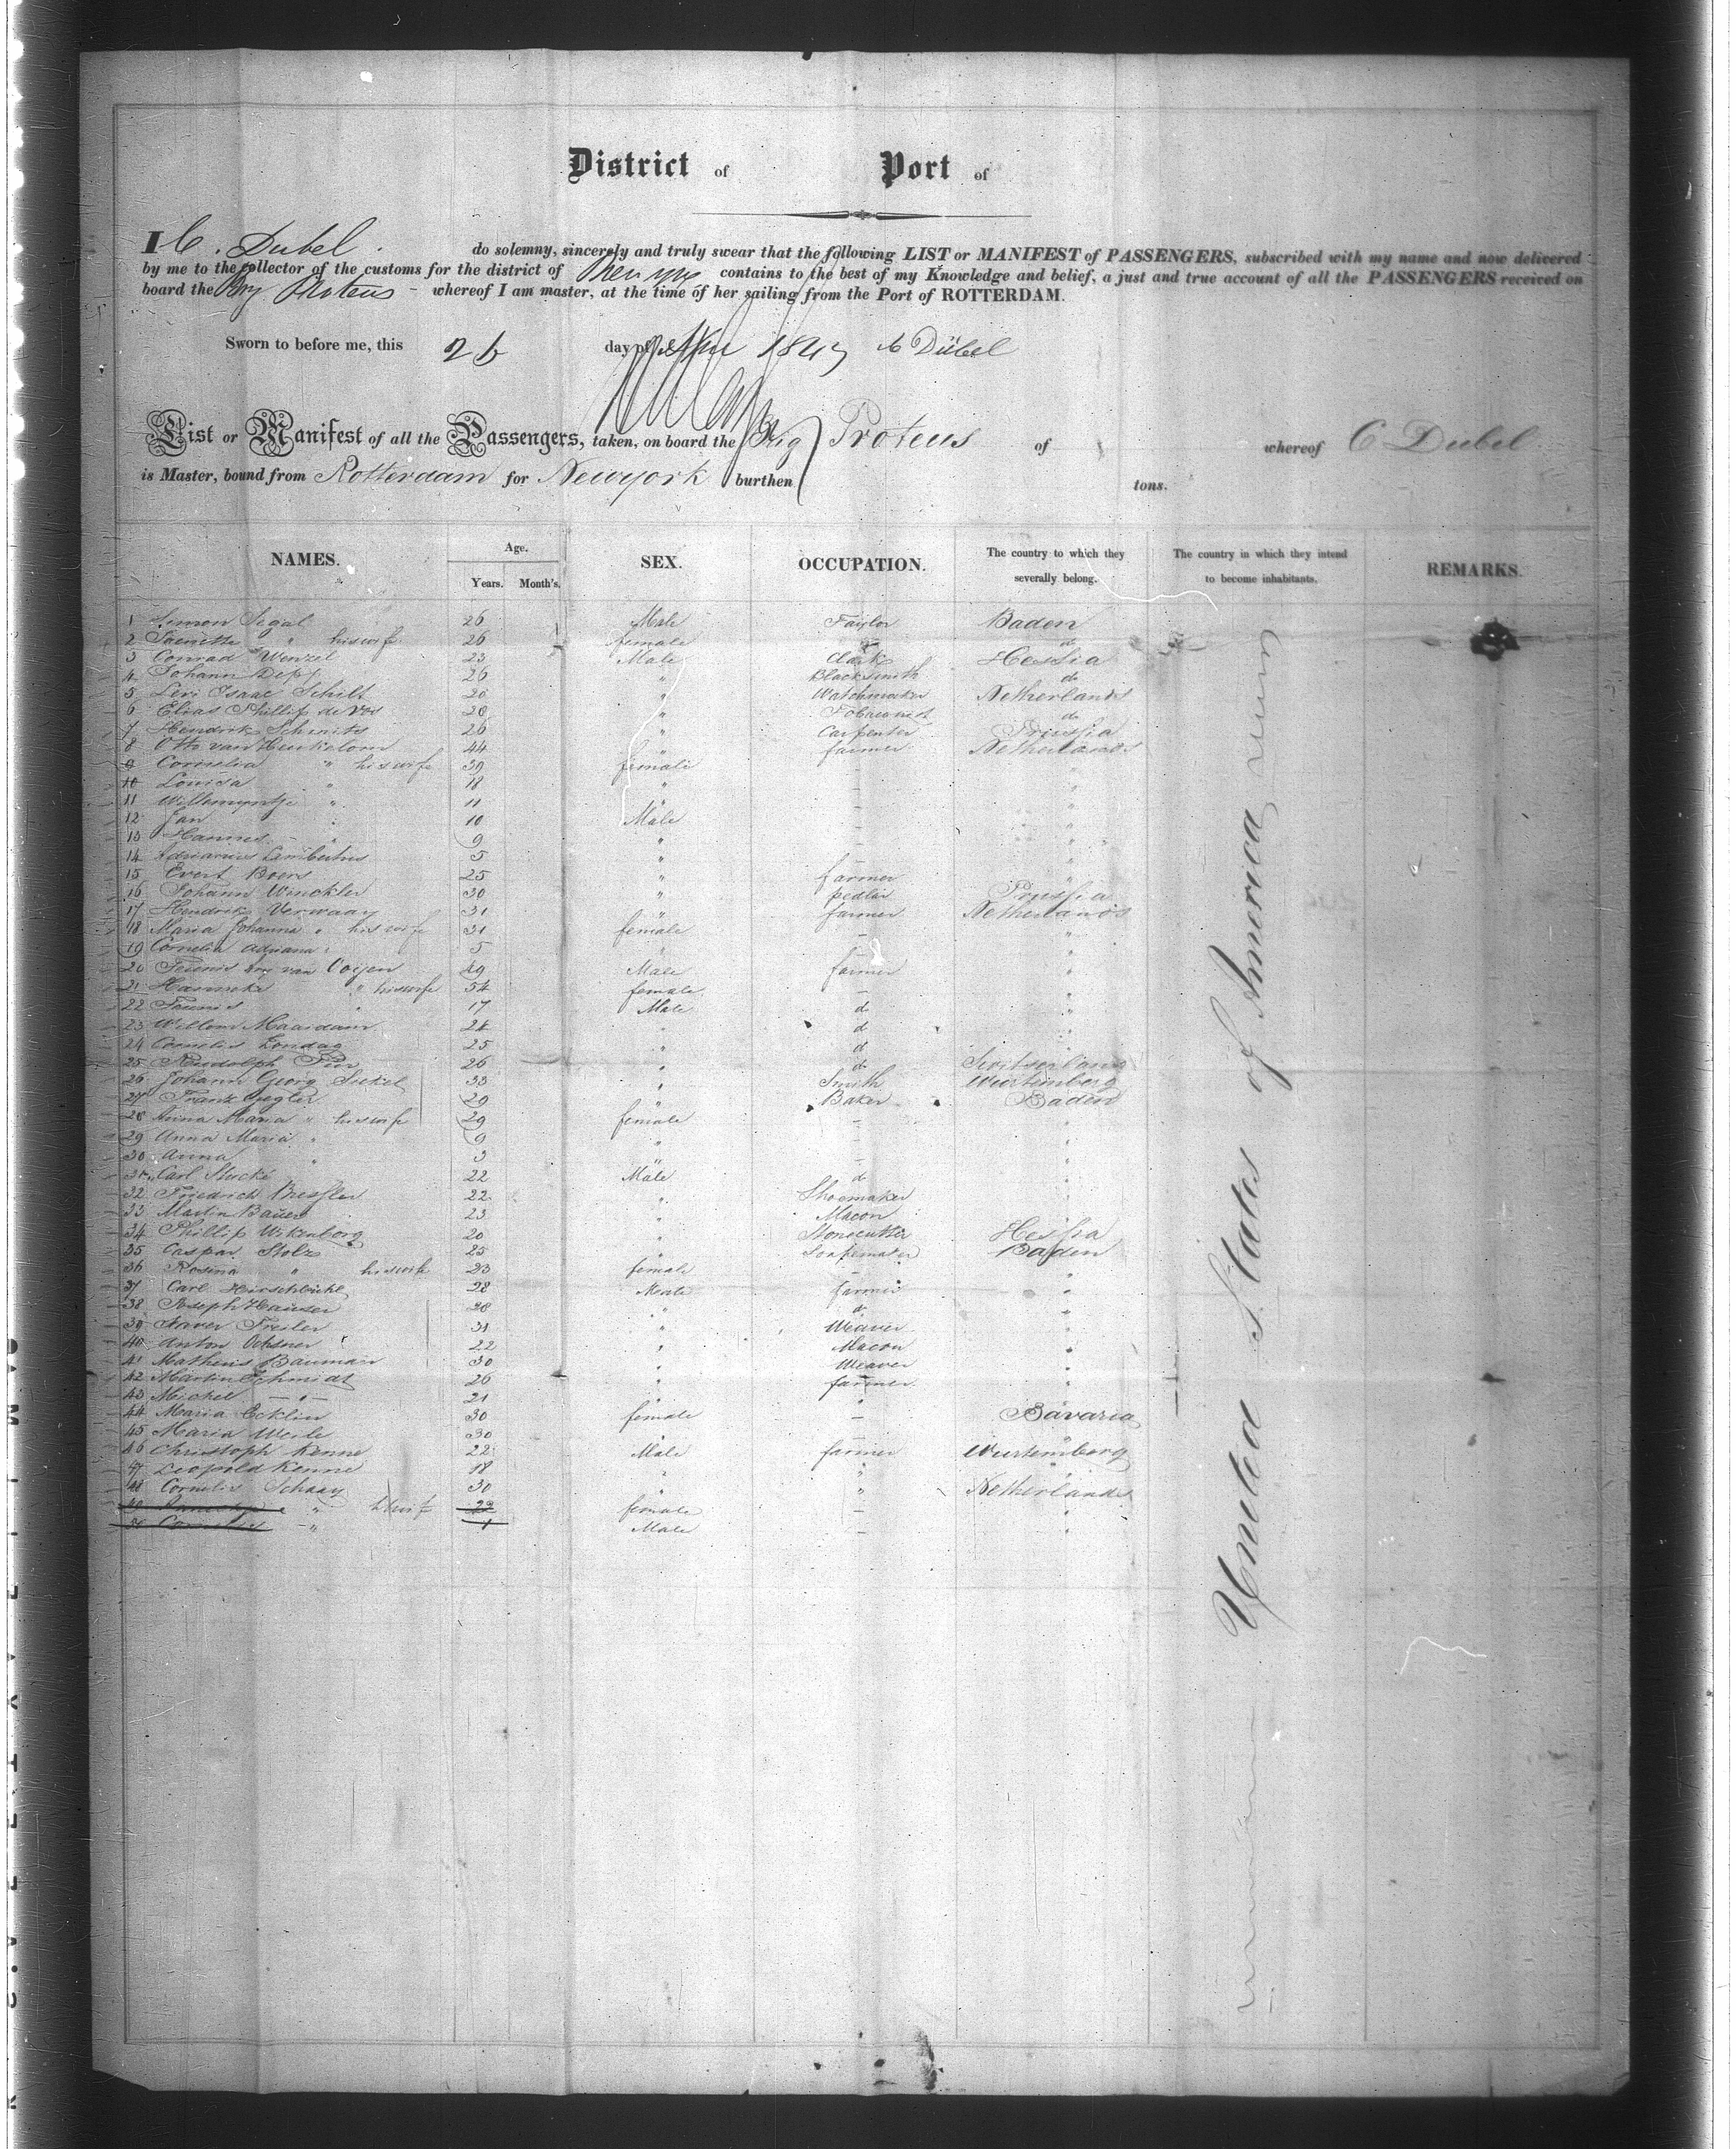 District of Port of
I C. Dubel do solemny, sincerely and truly swear that the following LIST or MANIFEST of PASSENGERS, subscribed with my name and now delivered
by me to the collector of the customs for the district of contains to the best of my Knowledge and belief, a just and true account of all the PASSENGERS received on
board the Brig Proteus whereof I am master, at the time of her sailing from the Port of ROTTERDAM.
Sworn to before me, this 26 day of 1847 C Dübel
List or Manifest of all the Passengers, taken, on board the Brig Proteus of whereof C Dubel
is Master, bound from Rotterdam for Newyork burthen tons.
NAMES. Age. Years. Month's. SEX. OCCUPATION. The country to which they severally belong. The country in which they intend to become inhabitants. REMARKS.
1 Simon Segal 26 Male Taylor Baden
2 " his wife 26 female d
3 Conrad Wenzel 23 Male Clark Hessia
4 Johann 26 " Blacksmith do
5 Levi Isaac Schilt 20 " Watchmaker Netherlands
6 Elias Phillip de Vos 20 " Tobaconist do
7 Hendrik Schmits 26 " Carpenter Prussia
8 Otto van Heukelom 44 " farmer Netherlands
9 Cornelia " his wife 39 female - "
10 Louisa " 18 " - "
11 Willemyntje " 11 " - "
12 Jan " 10 Male - "
13 Hannes " 9 " - "
14 Adrianus Lambertus 5 " - "
15 Evert Boers 25 " farmer "
16 Johann Winckler 30 " pedlar Prussia
17 Hendrik Verwaay 31 " farmer Netherlands
18 Maria Johanna " his wife 31 female - "
19 Cornelia Adriana " 5 " - "
20 Teunis van Ooijen 49 Male farmer "
21 Hanneke " his wife 54 female - "
22 Teunis " 17 Male d "
23 Willem Maaidam 24 " d "
24 Cornelis Londag 25 " d "
25 Rudolph 26 " d Switserland
26 Johann Georg Sickel 33 " Smith Wurtemberg
27 Franz Ziegler 29 " Baker Baden
28 Anna Maria " his wife 29 female - "
29 Anna Maria " 9 " - "
30 Anna " 3 " - "
31 Carl Stucke 22 Male d "
32 Friedrich Bressler 22 " Shoemaker "
33 Martin Bauer 23 " Macon "
34 Phillip Wikenborg 20 " Stonecutter Hessia
35 Caspar Stolz 25 " Soapemaker Baden
36 Rosina " his wife 23 female - "
37 Carl Hirschbühl 28 Male farmer "
38 Joseph Hauser 28 " d "
39 Xaver Freiler 31 " Weaver "
40 Anton Ochsner 22 " Macon "
41 Matheus Bauman 30 " Weaver "
42 Martin Schmidt 26 " farmer "
43 Michel - " - 21 " " "
44 Maria Ecklin 30 female - Bavaria
45 Maria Weile 30 " - "
46 Christoph Kenne 22 Male farmer Wurtemberg
47 Leopold Kenne 18 " " "
48 Cornelis Schaay 30 " " Netherlands
49 " his wife 29 female - "
50 Cornelis " 1 Male - "
United States of America